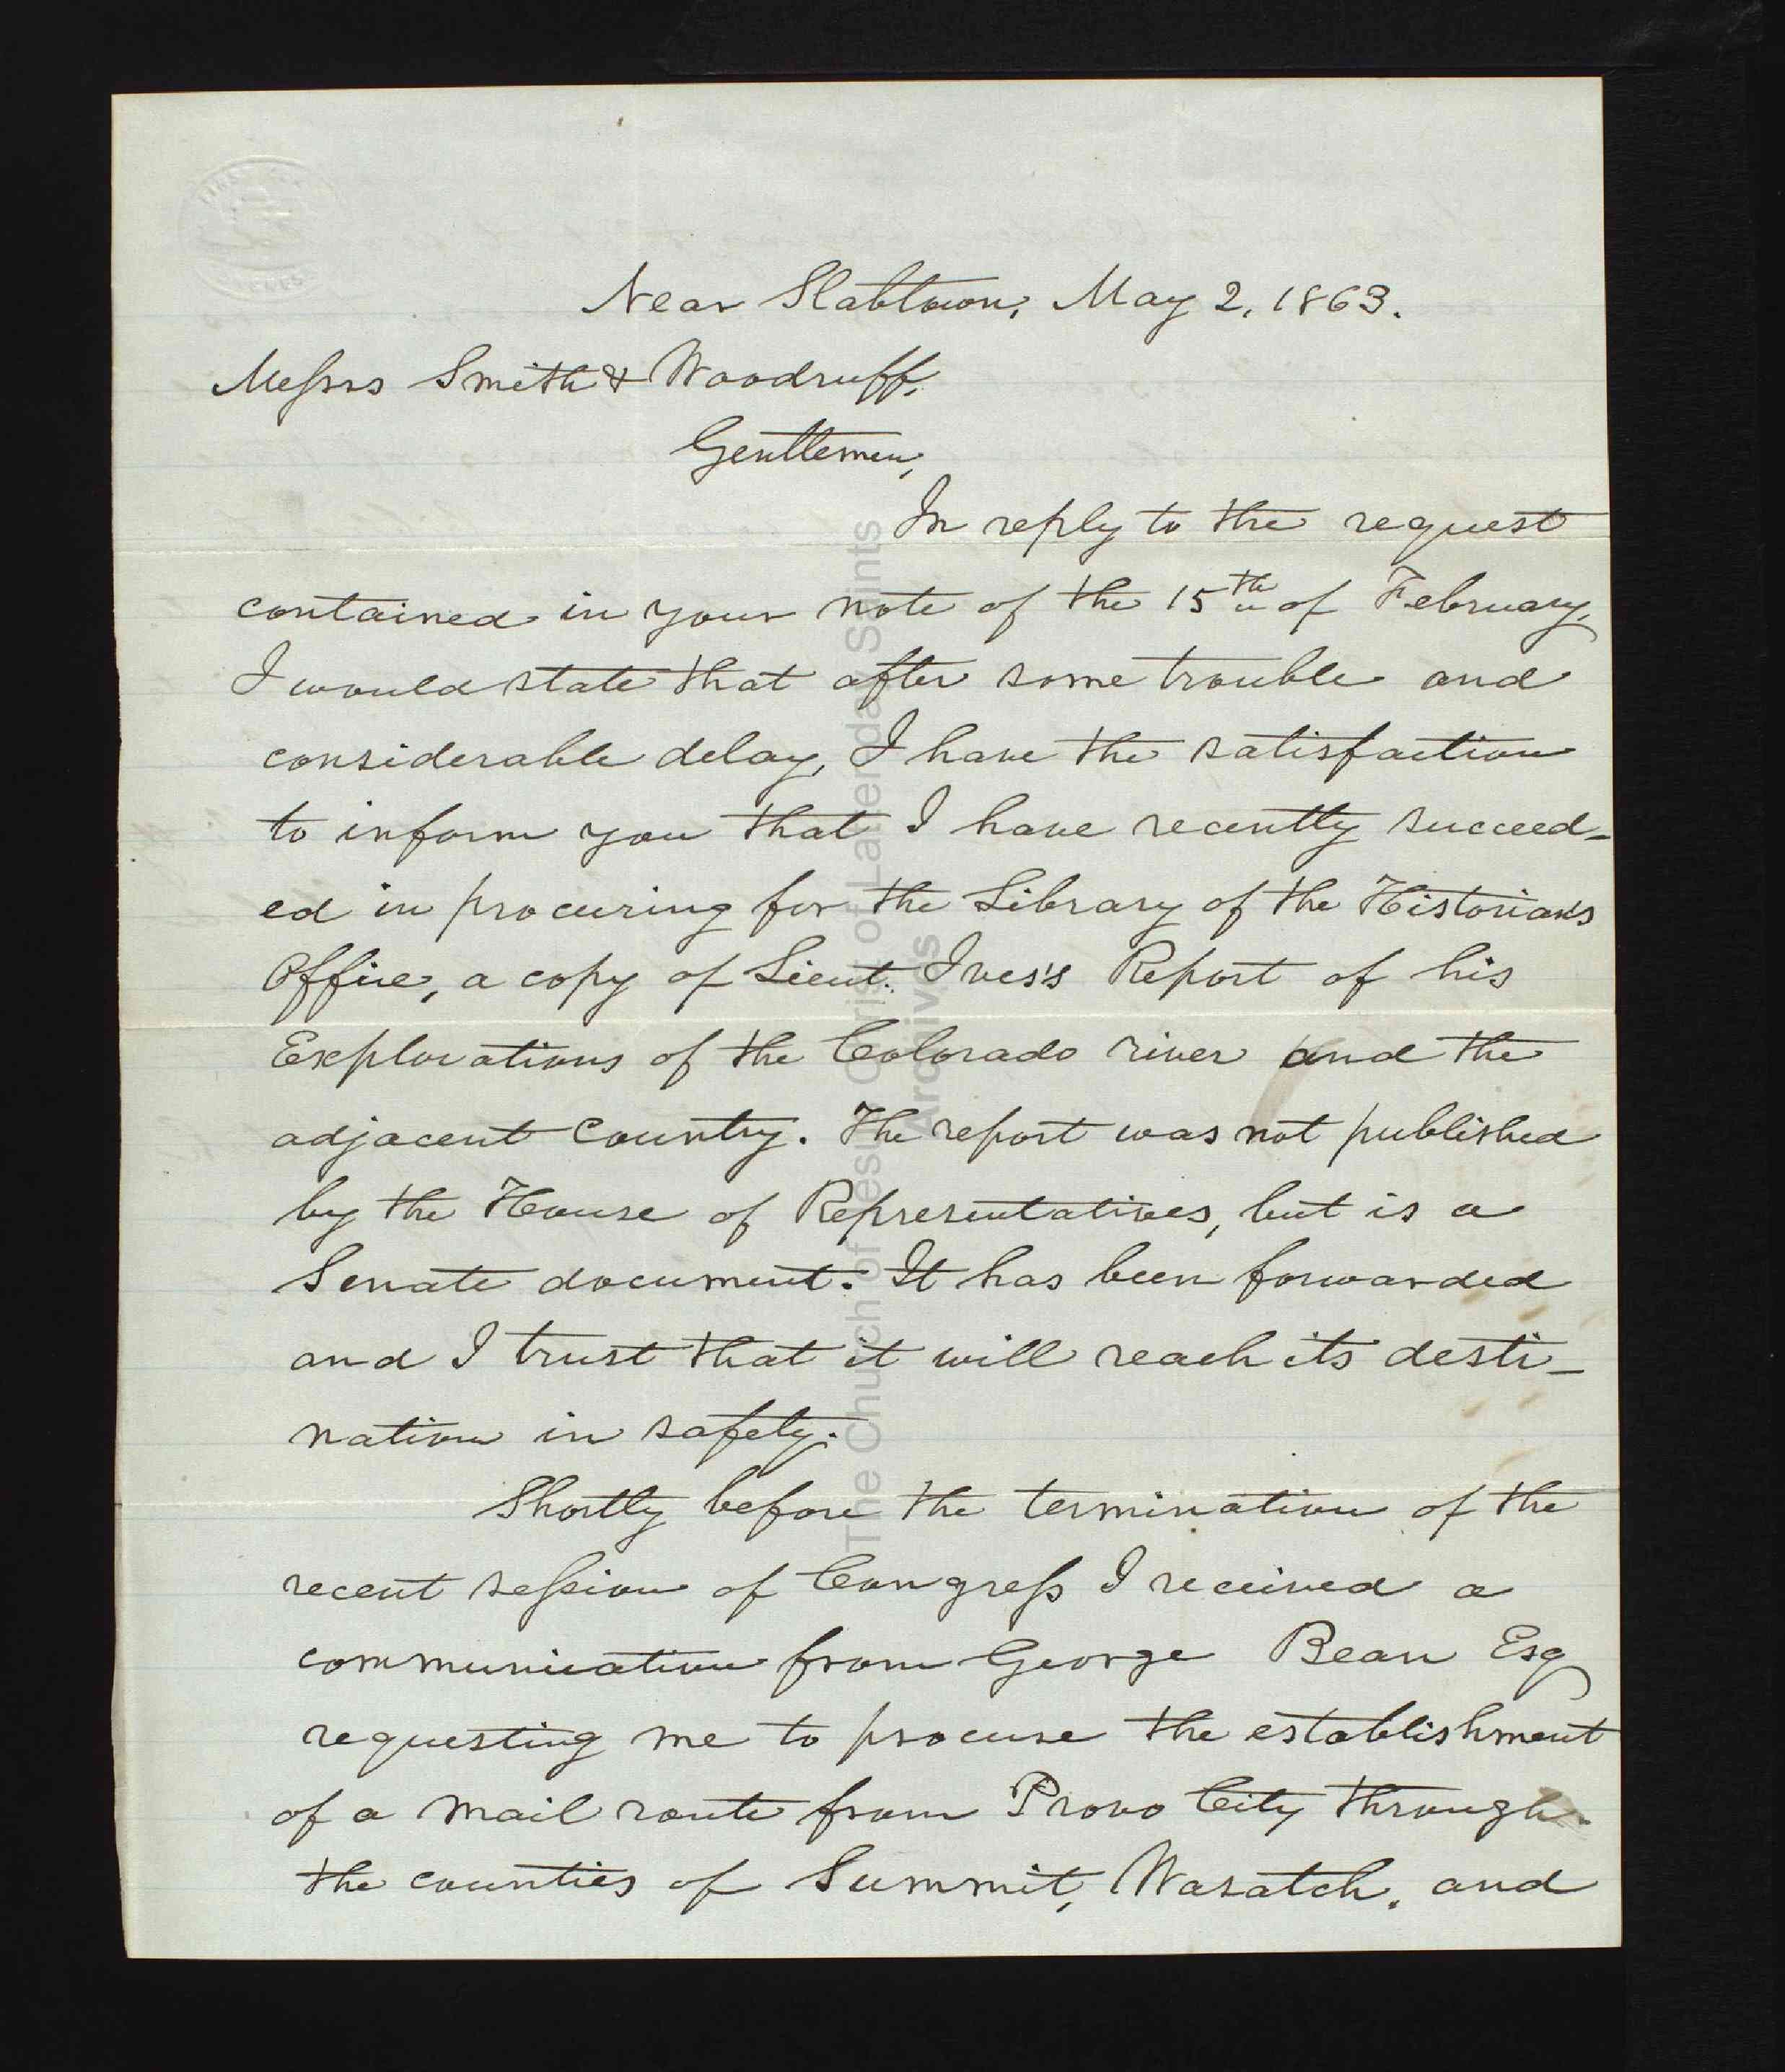 Near Slabtown, May 2, 1863.
Messrs Smith & Woodruff,
Gentlemen,
In reply to the request
contained in your note of the 15th of February,
I would state that after some trouble and
considerable delay, I have the satisfaction
to inform you that I have recently succeed-
ed in procuring for the Library of the Historian's
Office, a copy of Lieut. Ives's Report of his
Explorations of the Colorado river and the
adjacent Country. The report was not published
by the House of Representatives, but is a
Senate document. It has been forwarded
and I trust that it will reach its desti-
nation in safety.
Shortly before the termination of the
recent session of Congress I received a
communication from George Bean Esq
requesting me to procure the establishment
of a mail route from Provo City through
the counties of Summit, Wasatch, and
The Church of Jesus Christ of Latter-day Saints
Archives